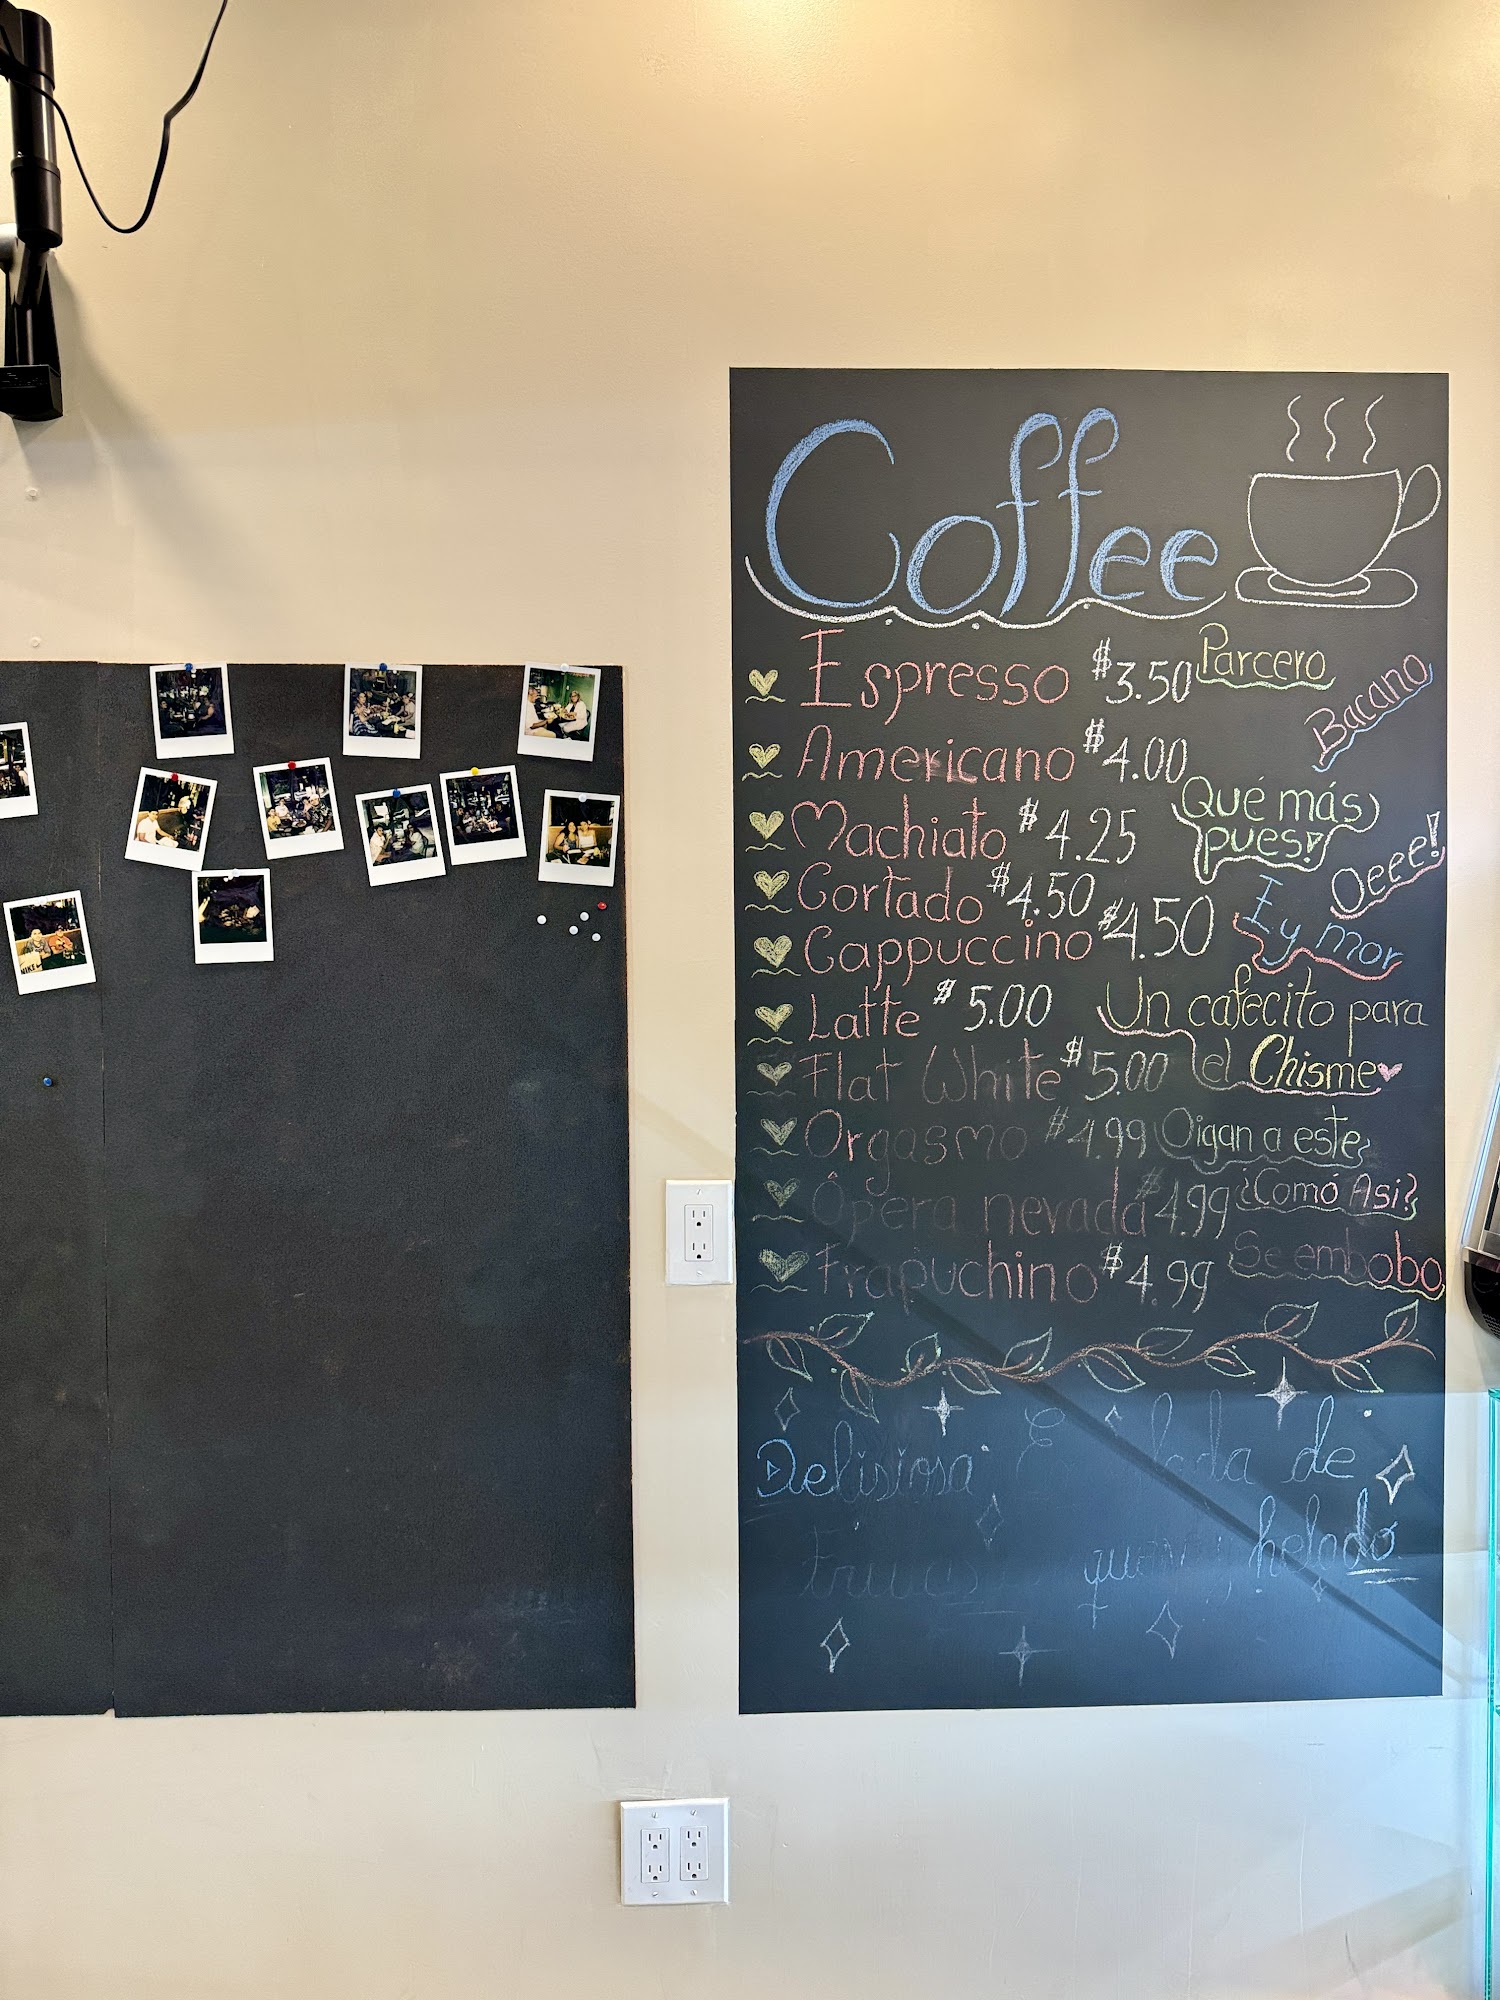 Coffee
Espresso $3.50 Parcero
Bacano
Americano $4.00
Qué más
pues!
Machiato $4.25
Oeee!
Cortado $4.50
Cappuccino $4.50 Ey mor
Latte $5.00 Un cafecito para
Flat White $5.00 el Chisme
Orgasmo $4.99 Oigan a este
Ópera nevada $4.99 ¿Comó Asi?
Frapuchino $4.99 Se embobo
Delisiosa de
helado
NIKE